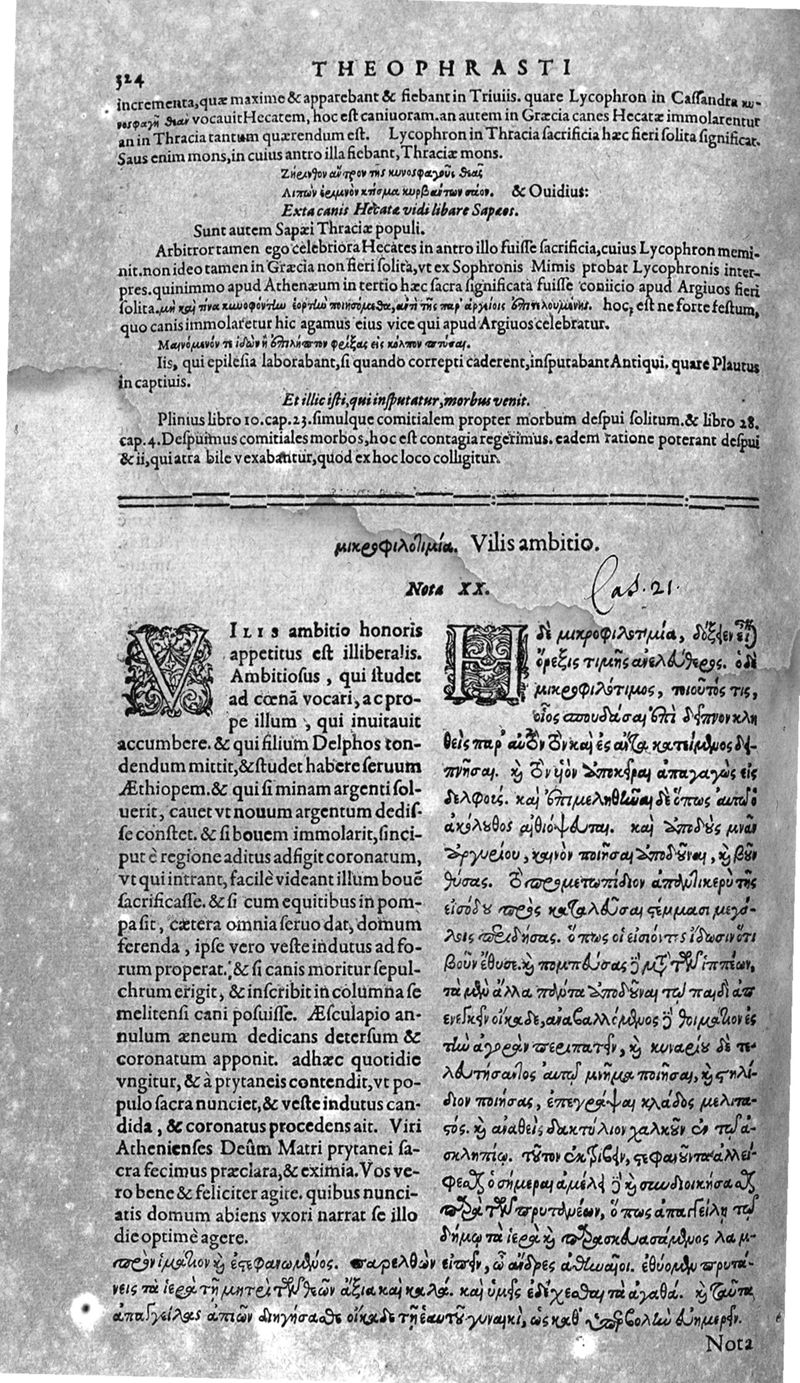 324
THEOPHRASTI
incrementa, quæ maxime & apparebant & fiebant in Triuiis. quare Lycophron in Cassandra κυ-
νοσφαγῆ θεὰν vocauit Hecatem, hoc est caniuoram. an autem in Græcia canes Hecatæ immolarentur
an in Thracia tantum quærendum est. Lycophron in Thracia sacrificia hæc fieri solita significat.
Saus enim mons, in cuius antro illa fiebant, Thraciæ mons.
Ζήρινθον ἄντρον τῆς κυνοσφαγοῦς θεᾶς
Λιπὼν ἐρυμνὸν κτίσμα κυρβάντων σάον. & Ouidius:
Exta canis Hecatæ vidi libare Sapæos.
Sunt autem Sapæi Thraciæ populi.
Arbitror tamen ego celebriora Hecates in antro illo fuisse sacrificia, cuius Lycophron memi-
nit. non ideo tamen in Græcia non fieri solita, vt ex Sophronis Mimis probat Lycophronis inter-
pres. quinimmo apud Athenæum in tertio hæc sacra significata fuisse coniicio apud Argiuos fieri
solita. μὴ καὶ τινα κυνοφόντιν ἑορτὴν ποιησόμεθα, ἀντὶ τῆς παρ' ἀργείοις ἐπιτελουμένης. hoc, est ne forte festum,
quo canis immolaretur hic agamus eius vice qui apud Argiuos celebratur.
Μαινόμενόν τε ἰδὼν ἢ ἐπίληπτον φρίξας εἰς κόλπον πτύσαι.
Iis, qui epilesia laborabant, si quando correpti caderent, insputabant Antiqui. quare Plautus
in captiuis.
Et illic isti, qui insputatur, morbus venit.
Plinius libro 10. cap. 23. simulque comitialem propter morbum despui solitum. & libro 28.
cap. 4. Despuimus comitiales morbos, hoc est contagia regerimus. eadem ratione poterant despui
& ii, qui atra bile vexabantur, quod ex hoc loco colligitur.
μικροφιλοτιμία. Vilis ambitio.
Nota XX.
Cas. 21.
VILIS ambitio honoris
appetitus est illiberalis.
Ambitiosus, qui studet
ad cœnā vocari, ac pro-
pe illum, qui inuitauit
accumbere. & qui filium Delphos ton-
dendum mittit, & studet habere seruum
Æthiopem. & qui si minam argenti sol-
uerit, cauet vt nouum argentum dedis-
se constet. & si bouem immolarit, sinci-
put è regione aditus adfigit coronatum,
vt qui intrant, facilè videant illum bouē
sacrificasse. & si cum equitibus in pom-
pa sit, cætera omnia seruo dat, domum
ferenda, ipse vero veste indutus ad fo-
rum properat. & si canis moritur sepul-
chrum erigit, & inscribit in columna se
melitensi cani posuisse. Æsculapio an-
nulum æneum dedicans detersum &
coronatum apponit. adhæc quotidie
vngitur, & à prytaneis contendit, vt po-
pulo sacra nunciet, & veste indutus can-
dida, & coronatus procedens ait. Viri
Athenienses Deûm Matri prytanei sa-
cra fecimus præclara, & eximia. Vos ve-
ro bene & feliciter agite. quibus nunci-
atis domum abiens vxori narrat se illo
die optimè agere.
Η δὲ μικροφιλοτιμία, δόξειεν εἶναι
ὄρεξις τιμῆς ἀνελεύθερος. ὁ δὲ
μικροφιλότιμος, τοιοῦτός τις,
οἷος σπουδάσαι ἐπὶ δεῖπνον κλη
θεὶς παρ' αὐτὸν τὸν καλέσαντα κατακείμενος δει-
πνῆσαι. καὶ τὸν υἱὸν ἀποκεῖραι ἀπαγαγὼν εἰς
δελφούς. καὶ ἐπιμεληθῆναι δὲ ὅπως αὐτῷ ὁ
ἀκόλουθος αἰθίοψ ἔσται. καὶ ἀποδοὺς μνᾶν
ἀργυρίου, καινὸν ποιῆσαι ἀποδοῦναι, καὶ βοῦν
θύσας. τὸ προμετωπίδιον ἀπαντικρὺ τῆς
εἰσόδου προσπατταλεῦσαι στέμμασι μεγά-
λοις περιδήσας. ὅπως οἱ εἰσιόντες ἴδωσιν ὅτι
βοῦν ἔθυσε. καὶ πομπεύσας δὲ μετὰ τῶν ἱππέων,
τὰ μὲν ἄλλα πάντα ἀποδοῦναι τῷ παιδὶ ἀπ
ενεγκεῖν οἴκαδε, ἀναβαλλόμενος δὲ θοἰμάτιον ἐς
τὴν ἀγορὰν περιπατεῖν, καὶ κυναρίου δὲ τε-
λευτήσαντος αὐτῷ μνῆμα ποιῆσαι, καὶ στηλί-
διον ποιήσας, ἐπιγράψαι κλάδος μελιταῖ-
ος. καὶ ἀναθεὶς δακτύλιον χαλκοῦν ἐν τῷ ἀ-
σκληπίῳ. τοῦτον ἐκτρίβειν, στεφανοῦντα ἀλεί-
φεσθαι ὁσημέραι ἀμέλει δὲ καὶ συνδιοικήσασθαι
παρὰ τῶν πρυτανέων, ὅπως ἀπαγγείλῃ τῷ
δήμῳ τὰ ἱερὰ καὶ παρασκευασάμενος λαμ-
πρὸν ἱμάτιον καὶ ἐστεφανωμένος. παρελθὼν εἰπεῖν, ὦ ἄνδρες ἀθηναῖοι. ἐθύομεν πρυτά-
νεις τὰ ἱερὰ τῇ μητρὶ τῶν θεῶν ἄξια καὶ καλά. καὶ ὑμεῖς ἐδέχεσθαι τὰ ἀγαθά. καὶ ταῦτα
ἀπαγγείλας ἀπιὼν διηγήσασθαι οἴκαδε τῇ ἑαυτοῦ γυναικὶ, ὡς καθ' ὑπερβολὴν εὐημερεῖν.
Nota